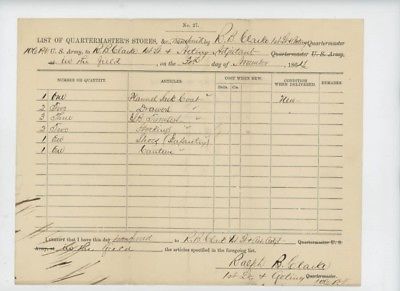 No. 27.
LIST OF QUARTERMASTER'S STORES, &c., R. B. Clarke 1st Lt & Actg Quartermaster
U. S. Army, to R. B. Clarke 1st Lt & Acting Adjutant Quartermaster U. S. Army,
at in the field, on the 30th day of November 1864
NUMBER OR QUANTITY. ARTICLES. COST WHEN NEW. CONDITION WHEN DELIVERED. REMARKS.
Dolls. Cts.
1 One Flannel Sack Coat " New
2 Two Drawers "
3 Three Shirts "
2 Two Stockings "
1 One Shoes (Infantry) "
1 One Canteen "
I CERTIFY that I have this day transferred to R. B. Clarke 1st Lt & Act. Adjt. Quartermaster U. S.
Army, at in the field the articles specified in the foregoing list.
Ralph B. Clarke
1st Lt & Acting Quartermaster